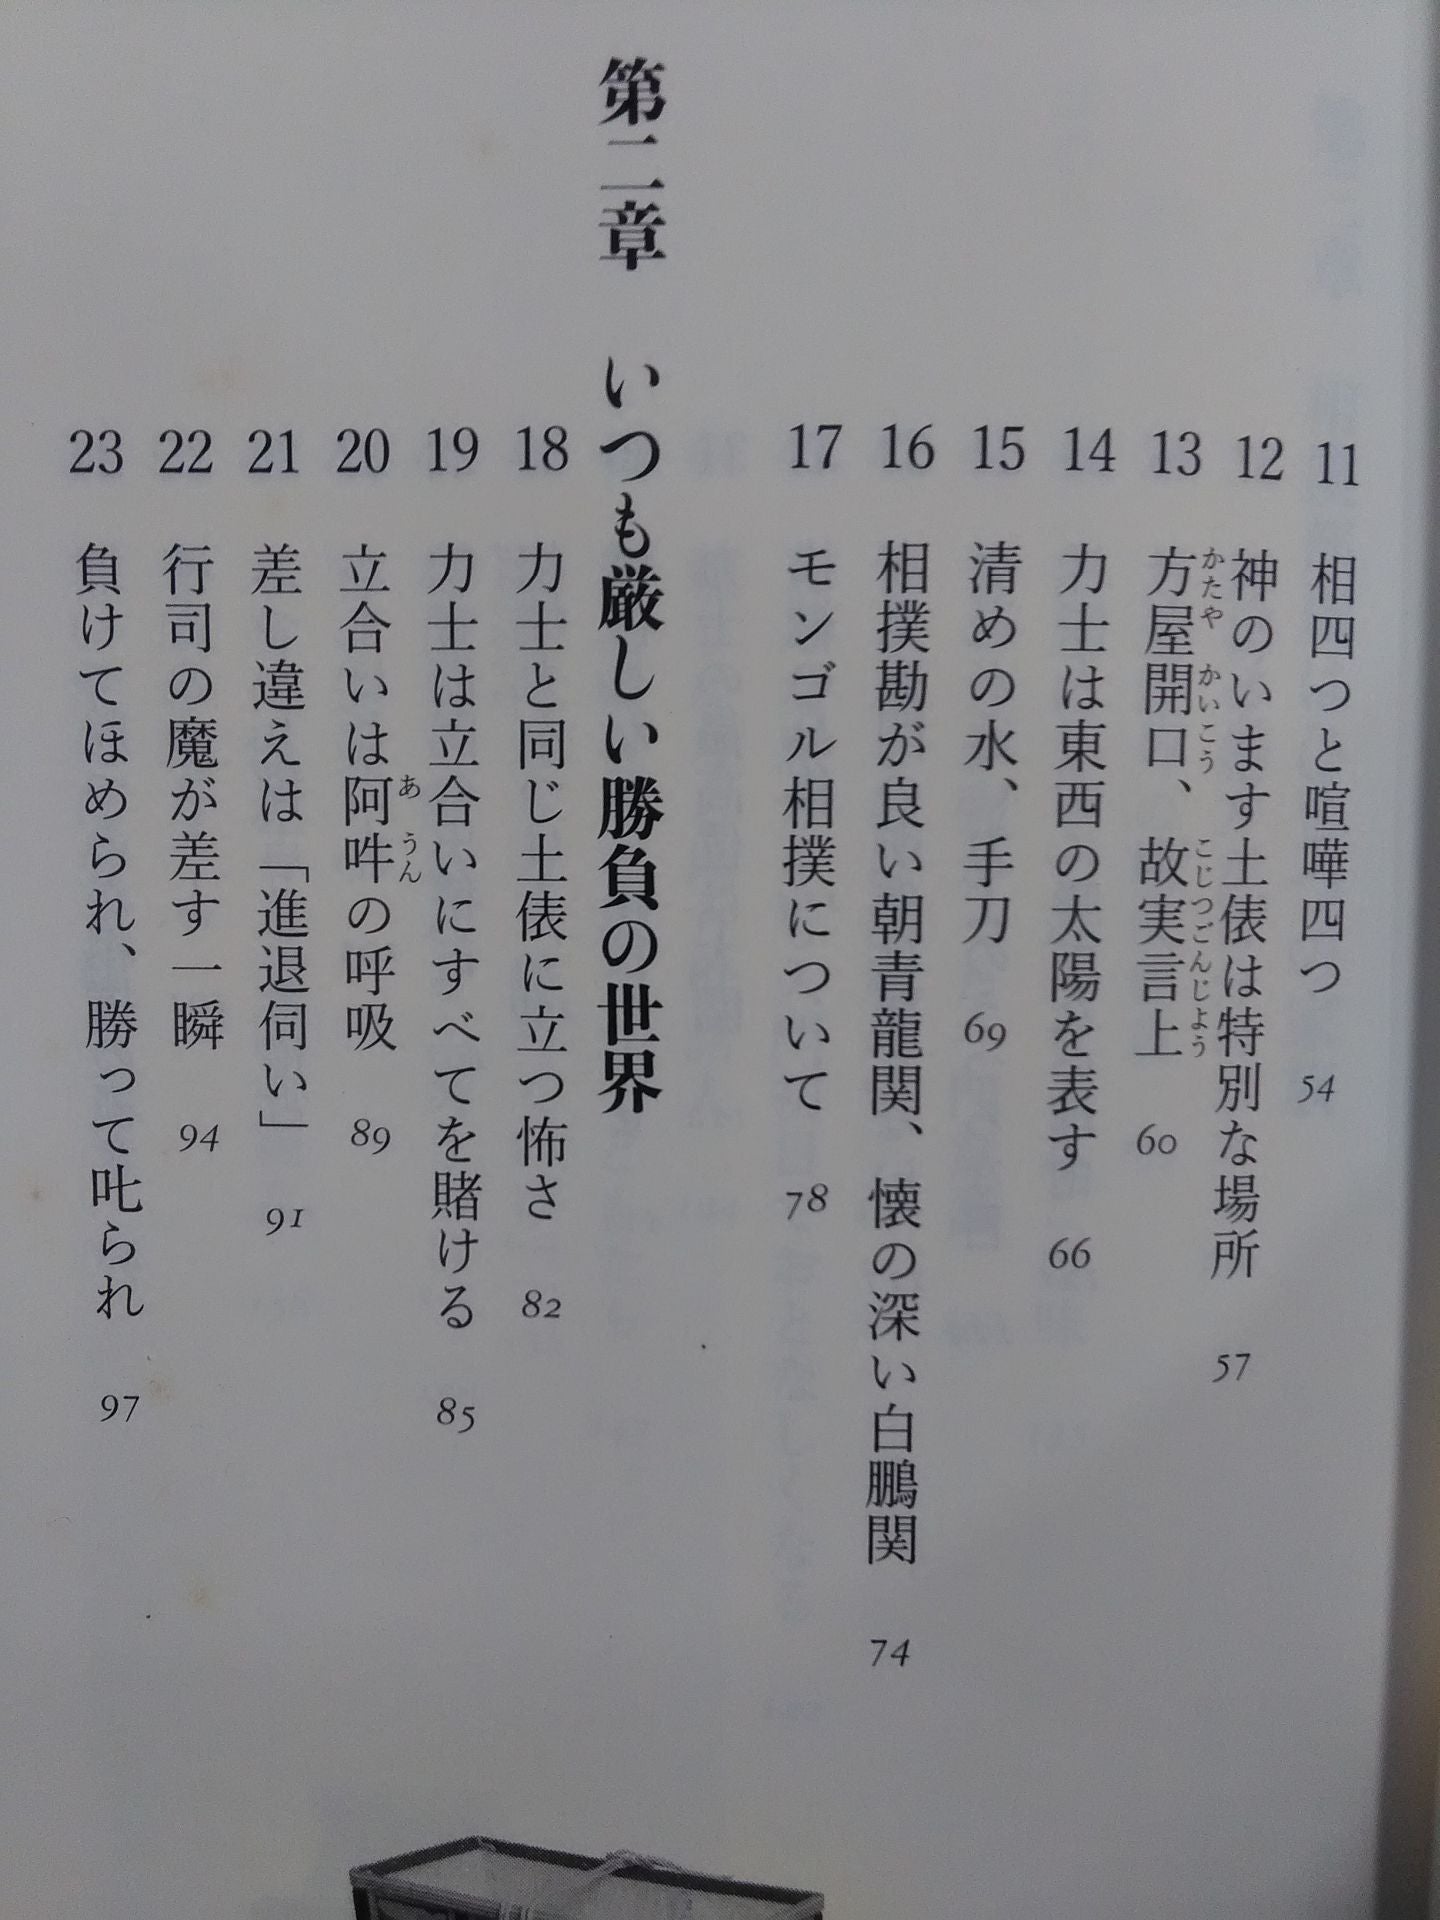 11 相四つと喧嘩四つ 54
12 神のいます土俵は特別な場所 57
13 方屋開口、故実言上 60
かたや かいこう こじつごんじよう
14 力士は東西の太陽を表す 66
15 清めの水、手刀 69
16 相撲勘が良い朝青龍関、懐の深い白鵬関 74
17 モンゴル相撲について 78
第二章 いつも厳しい勝負の世界
18 力士と同じ土俵に立つ怖さ 82
19 力士は立合いにすべてを賭ける 85
20 立合いは阿吽の呼吸 89
あ うん
21 差し違えは「進退伺い」 91
22 行司の魔が差す一瞬 94
23 負けてほめられ、勝って叱られ 97